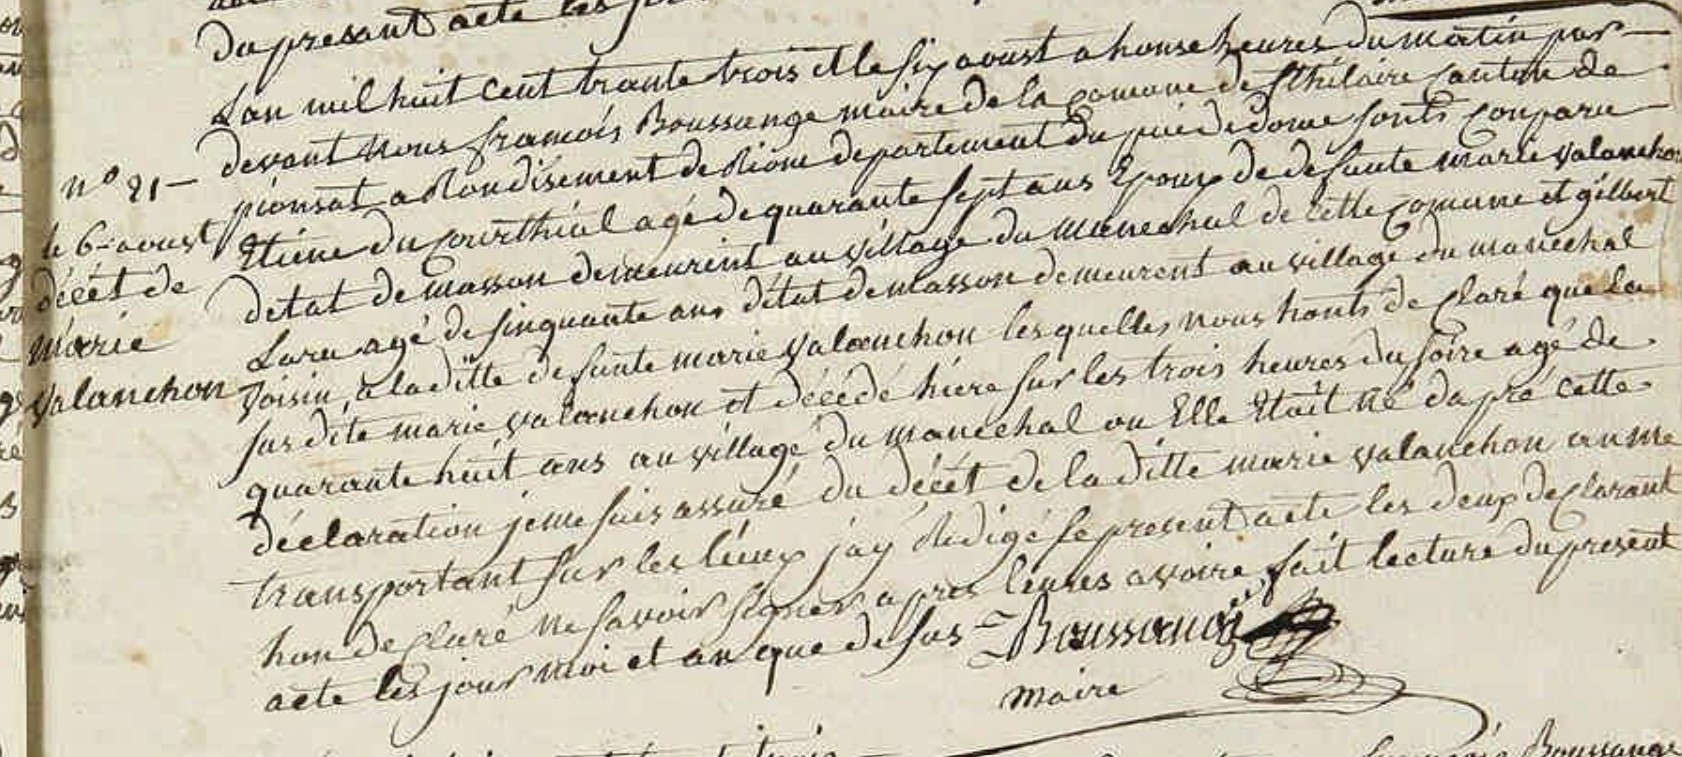 du present acte les
Lan mil huit cent trante trois et le six aoust a honse heures du matin par
devant nous framcois Boussange maire de la comune de st hilaire canton de
pionsat arondisement de Riom departement du puidedome sonts conparu
Etiene du courthial agé de quarante sept ans Epoux de defunte marie valanchon
detat de masson demeurint au village du marechal de cette comune et gilbert
Laru agé de sinquante ans détat de masson demeurent au village du marechal
voisin, a la ditte defunte marie valanchon les quelles nous honts de claré que la
sus dite marie valanchon et décédé hiere sur les trois heures du soire agé de
quarante huit ans au village du marechal ou Elle Etait né dapré cette
déclaration je me suis assuré du décét de la ditte marie valanchon an me
transportant sur les lieux jay Redigé le present acte les deux declarant
hon de claré ne savoir signer apres leures avoire fait lecture du present
acte les jour moi et an que de sus
Boussange
maire
n° 21
le 6 aoust
décét de
marie
valanchon
trois
Boussange